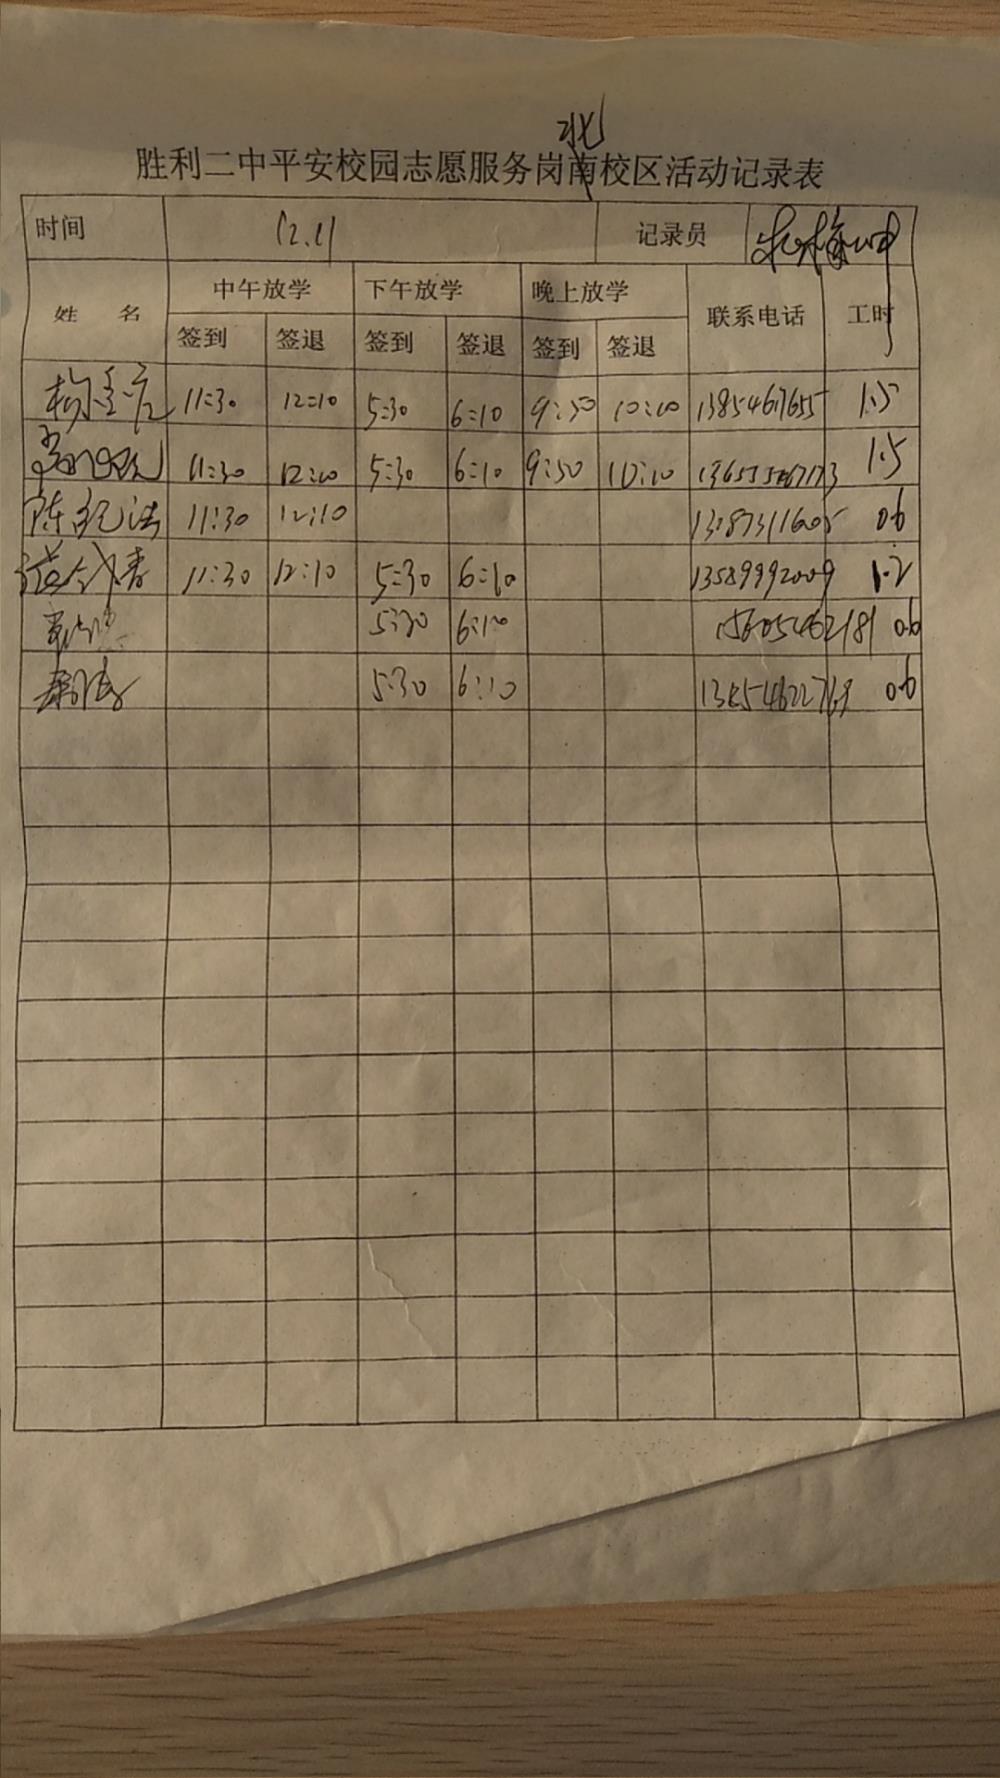 北
胜利二中平安校园志愿服务岗南校区活动记录表
时间 12.1 记录员
姓 名 中午放学 下午放学 晚上放学 联系电话 工时
签到 签退 签到 签退 签到 签退
11:30 12:10 5:30 6:10 9:50 10:10 13854617655 1.5
11:30 12:10 5:30 6:10 9:50 10:10 1.5
陈纪法 11:30 12:10 0.6
11:30 12:10 5:30 6:10 13589992009 1.2
5:30 6:10 15605462181 0.6
5:30 6:10 13854622769 0.6